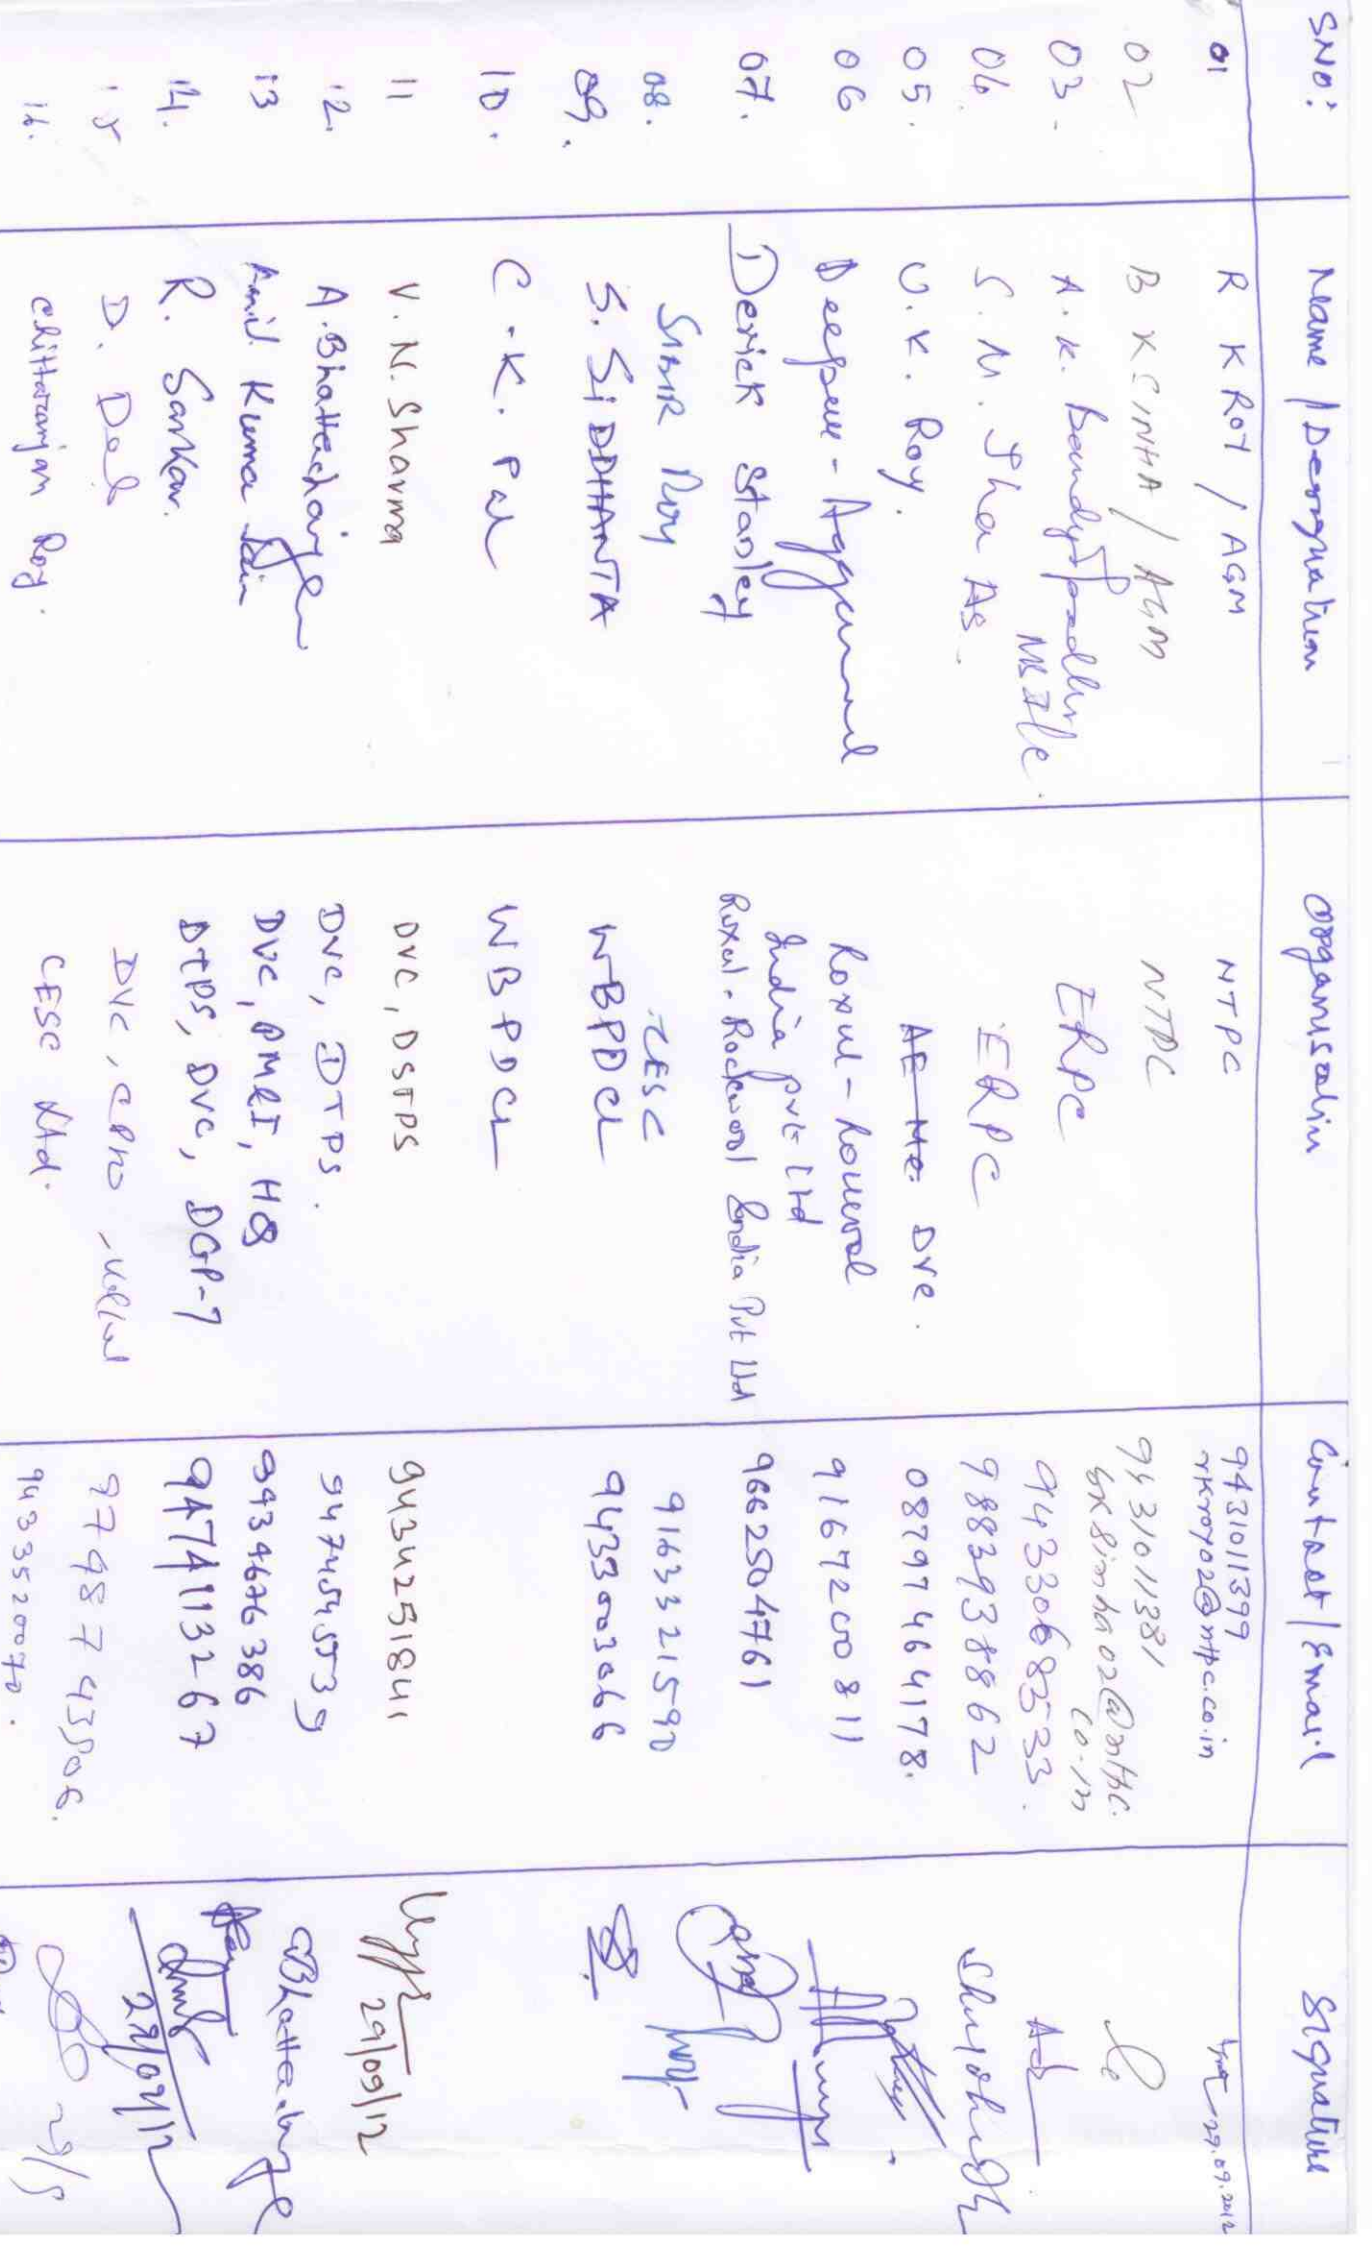 SNO: Name / Designation Organisation Contact / Email Signature
01 R K ROY / AGM NTPC 9431011399
rkroy02@ntpc.co.in 29.09.2012
02 B K SINHA / AGM NTPC 9431011381
bksinha02@ntpc.
co.in
03. A. K. Bandyopadhyay ERPC 9433068533.
MS
04. S. M. Jha AS. ERPC 9883938862
05. U. K. Roy. AE Me DVC. 08797464178.
06 Deepak - Aggarwal Roxul - Rockwool 9167200811
India Pvt Ltd
07. Derick Stanley Roxul - Rockwool India Pvt Ltd 9662504761
08. SIBIR ROY CESC 9163321590
09. S. SIDDHANTA WBPDCL 9433003066
10. C. K. Pal WBPDCL
11 V. N. Sharma DVC, DSTPS 9434251841 29/09/12
12. A. Bhattacharjee DVC, DTPS. 9474545539 Bhattacharjee
13 Anil Kumar Jain DVC, PM&I, HQ 9934676386
14. R. Sarkar. DTPS, DVC, DGP-7 9474113267 29/09/12
15 D. Deb DVC, 
16. Chittaranjan Roy. CESC Ltd. 9433520070.